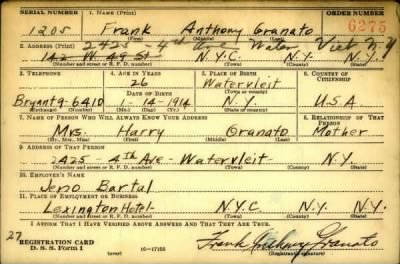 SERIAL NUMBER 1. NAME (Print) ORDER NUMBER
1205 Frank Anthony Granato 6275
(First) (Middle) (Last)
2. ADDRESS (Print) 2425 - 4th Ave Water Vliet N.Y
142 W. 49 St N.Y.C. N.Y. N.Y.
(Number and street or R. F. D. number) (Town) (County) (State)
3. TELEPHONE 4. AGE IN YEARS 5. PLACE OF BIRTH 6. COUNTRY OF CITIZENSHIP
26 Watervleit
DATE OF BIRTH (Town or county)
Bryant 9-6410 1-14-1914 N.Y. U.S.A.
(Exchange) (Number) (Mo.) (Day) (Yr.) (State or country)
7. NAME OF PERSON WHO WILL ALWAYS KNOW YOUR ADDRESS 8. RELATIONSHIP OF THAT PERSON
Mrs. Harry Granato Mother
(Mr., Mrs., Miss) (First) (Middle) (Last)
9. ADDRESS OF THAT PERSON
2425 - 4th Ave - Watervleit - N.Y.
(Number and street or R. F. D. number) (Town) (County) (State)
10. EMPLOYER'S NAME
Bartal
11. PLACE OF EMPLOYMENT OR BUSINESS
Lexington Hotel - N.Y.C. N.Y. N.Y.
(Number and street or R. F. D. number) (Town) (County) (State)
I AFFIRM THAT I HAVE VERIFIED ABOVE ANSWERS AND THAT THEY ARE TRUE.
27
REGISTRATION CARD
D. S. S. Form 1 (over) Frank Anthony Granato
(Registrant's signature)